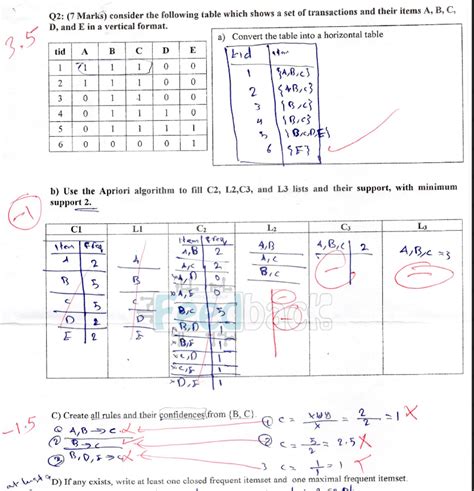 Q2: (7 Marks) consider the following table which shows a set of transactions and their items A, B, C,
D, and E in a vertical format.
3.5
a) Convert the table into a horizontal table
tid A B C D E
1 1 1 1 0 0
2 1 1 1 0 0
3 0 1 1 0 0
4 0 1 1 1 0
5 0 1 1 1 1
6 0 0 0 0 1
tid item
1 {A,B,C}
2 {A,B,C}
3 {B,C}
4 {B,C}
5 {B,C,D,E}
6 {E}
b) Use the Apriori algorithm to fill C2, L2,C3, and L3 lists and their support, with minimum
support 2.
-1
C1 L1 C2 L2 C3 L3
Item Freq
A 2
B 5
C 5
D 2
E 2
A
B
C
D
E
Item Freq
A,B 2
A,C 2
A,D 0
A,E 0
B,C 5
B,D 1
B,E 1
C,D 1
C,E 1
D,E 1
A,B
A,C
B,C
A,B,C 2
A,B,C = 3
Feedback
-1.5
C) Create all rules and their confidences from {B, C}.
① A,B → C
② B → C
③ B,D,E → C
① C = = 2/2 = 1 X
② C = 5/2 = 2.5 X
3 C = 1/1 = 1
at least
D) If any exists, write at least one closed frequent itemset and one maximal frequent itemset.